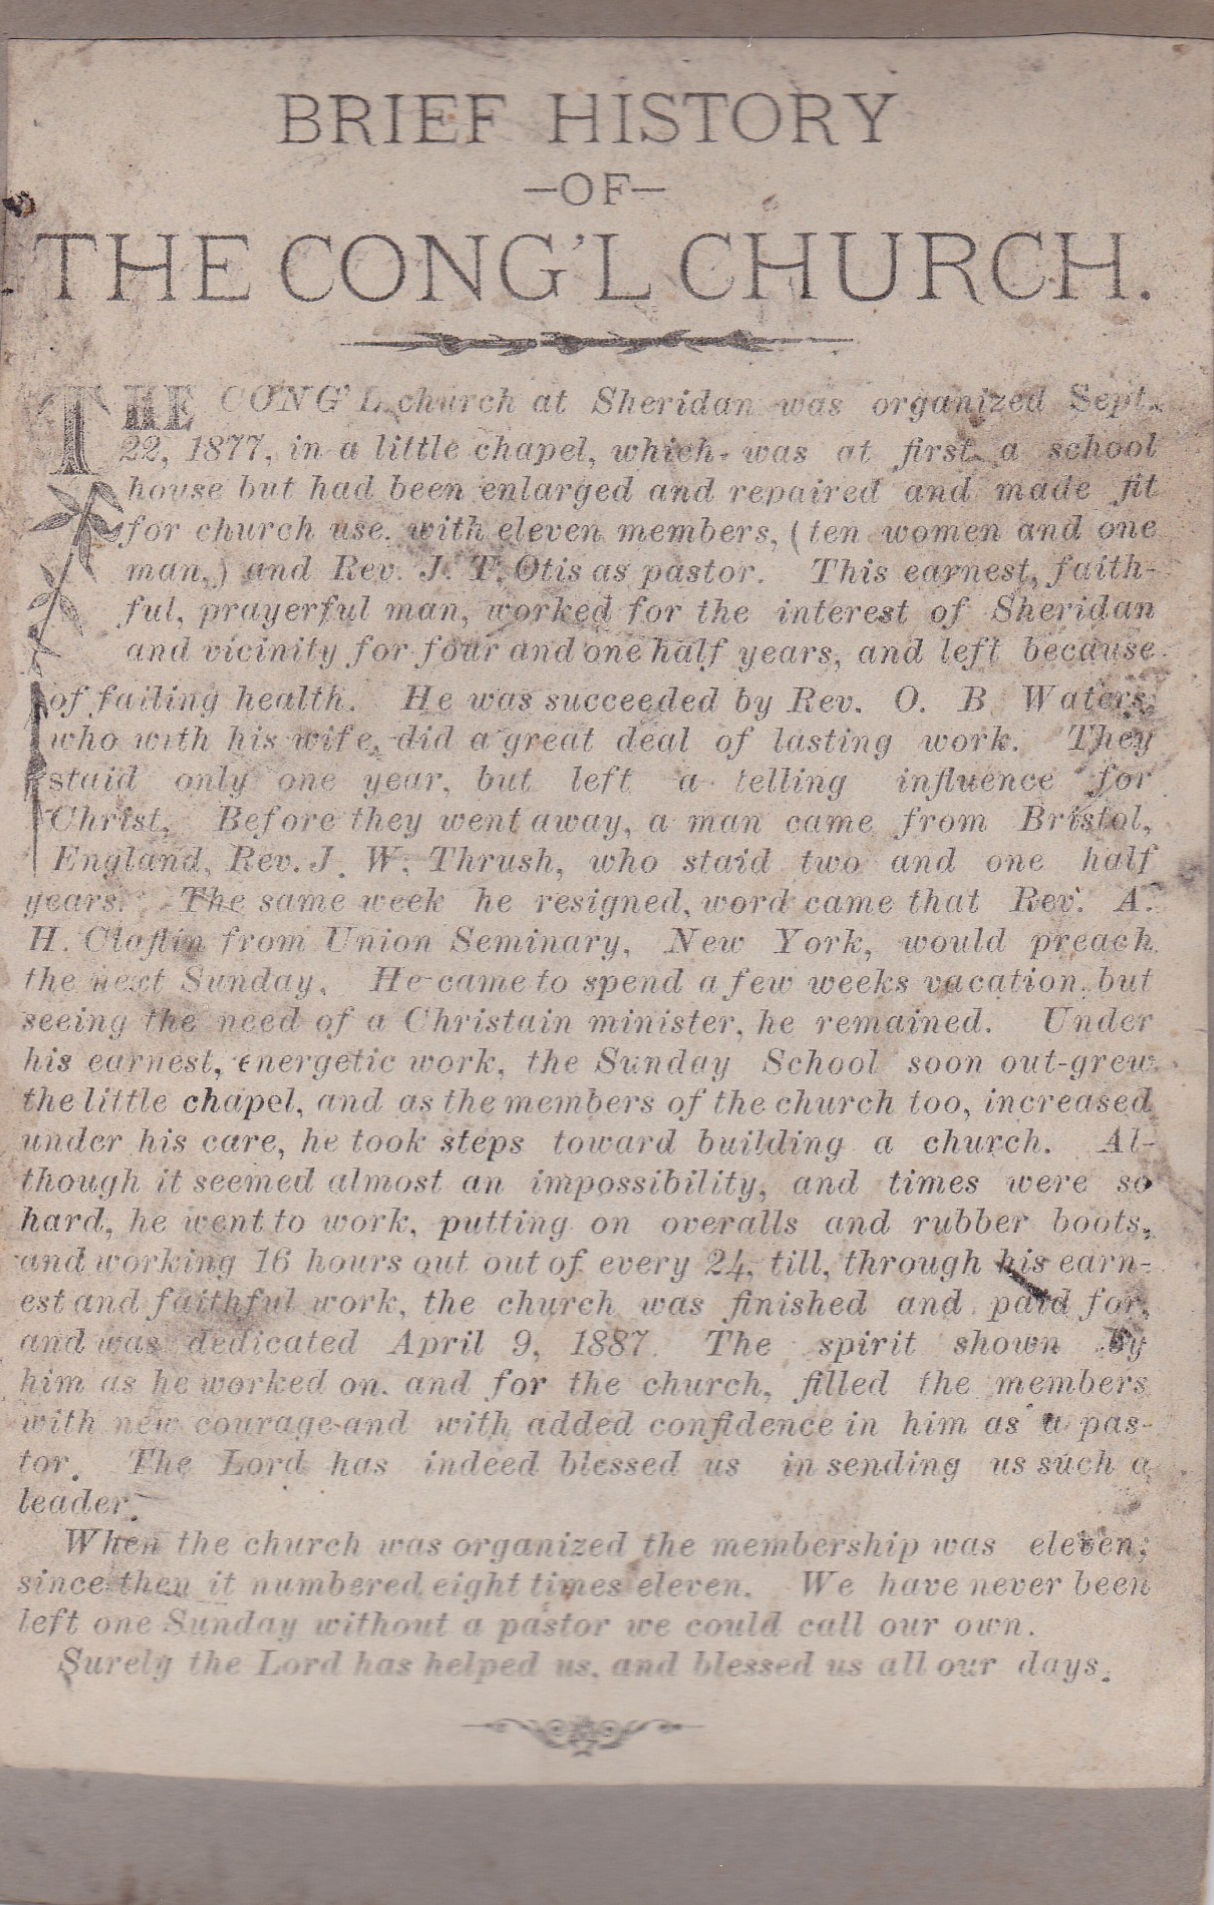 BRIEF HISTORY
—OF—
THE CONG'L CHURCH.
THE CONG'L church at Sheridan was organized Sept.
22, 1877, in a little chapel, which was at first a school
house but had been enlarged and repaired and made fit
for church use. with eleven members, (ten women and one
man,) and Rev. J. T. Otis as pastor. This earnest, faith-
ful, prayerful man, worked for the interest of Sheridan
and vicinity for four and one half years, and left because
of failing health. He was succeeded by Rev. O. B. Waters,
who with his wife, did a great deal of lasting work. They
staid only one year, but left a telling influence for
Christ. Before they went away, a man came from Bristol,
England, Rev. J. W. Thrush, who staid two and one half
years. The same week he resigned, word came that Rev. A.
H. Claflin from Union Seminary, New York, would preach
the next Sunday. He came to spend a few weeks vacation, but
seeing the need of a Christain minister, he remained. Under
his earnest, energetic work, the Sunday School soon out-grew
the little chapel, and as the members of the church too, increased
under his care, he took steps toward building a church. Al-
though it seemed almost an impossibility, and times were so
hard, he went to work, putting on overalls and rubber boots,
and working 16 hours out out of every 24, till, through his earn-
est and faithful work, the church was finished and paid for,
and was dedicated April 9, 1887. The spirit shown by
him as he worked on, and for the church, filled the members
with new courage and with added confidence in him as a pas-
tor. The Lord has indeed blessed us in sending us such a
leader.
When the church was organized the membership was eleven;
since then it numbered eight times eleven. We have never been
left one Sunday without a pastor we could call our own.
Surely the Lord has helped us, and blessed us all our days.